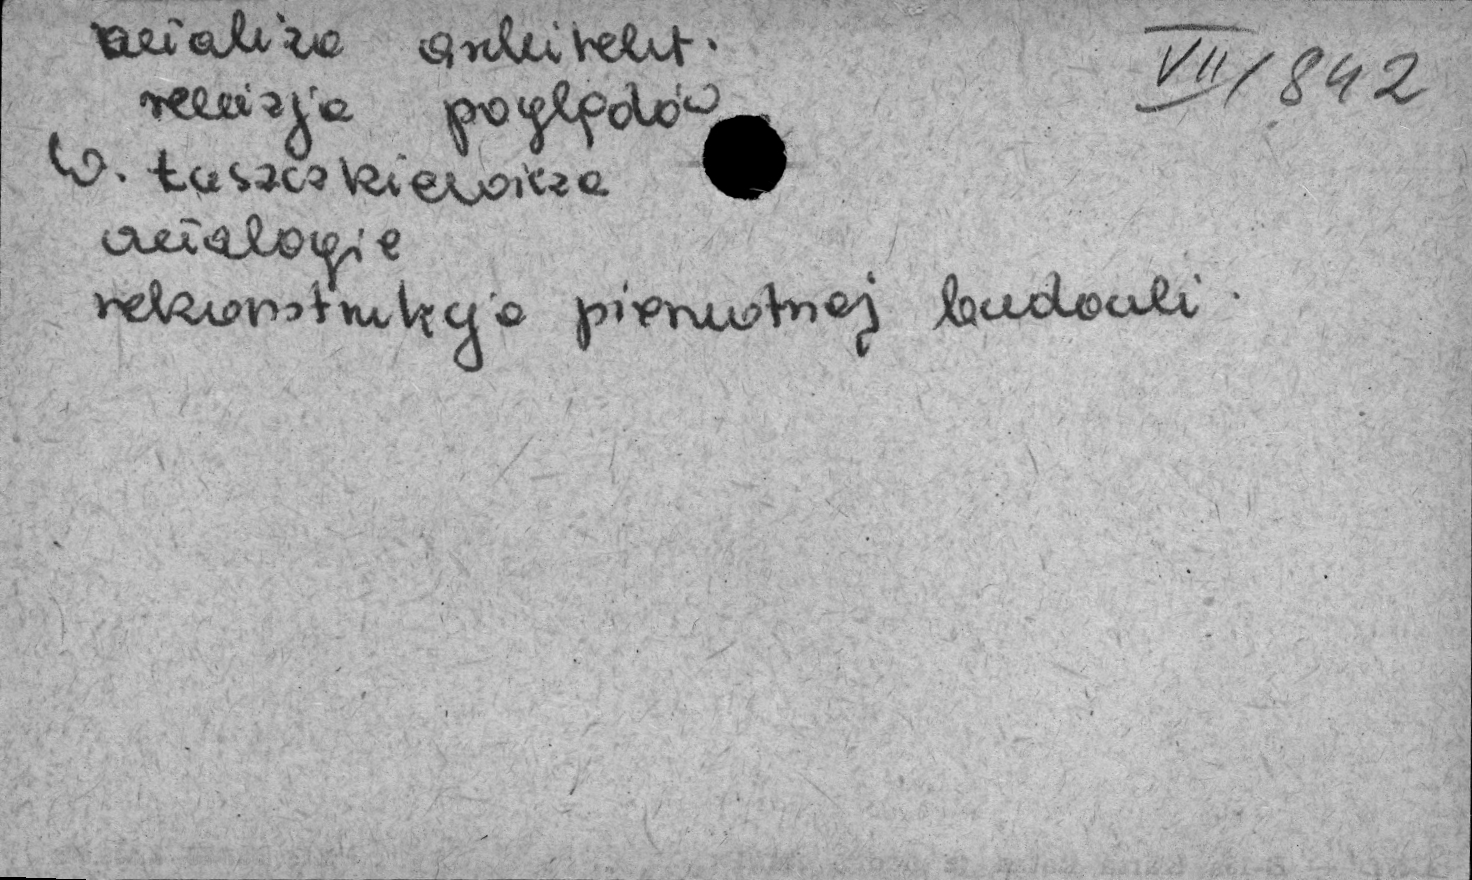 analiza architekt.
VII/842
rewizja poglądów
W. Łuszczkiewicza
analogie
rekonstrukcja pierwotnej budowli.